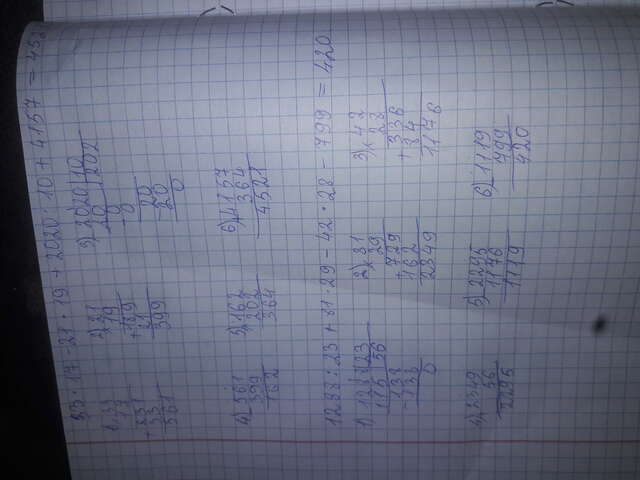 33 · 17 - 21 · 19 + 2020 : 10 + 4157 = 452
1) 33 2) 21 3) 2020 | 10
17 19 20 202
+ 231 + 189 0
33 21 - 0
561 399 20
- 20
0
4) 561 5) 162 6) 4157
399 202 364
162 364 4521
1288 : 23 + 81 · 29 - 42 · 28 - 799 = 420
1) 1288 | 23 2) 81 3) 42
115 56 29 28
138 + 729 + 336
- 138 162 84
0 2349 1176
4) 2349 5) 2295 6) 1119
56 1176 799
2295 1119 420